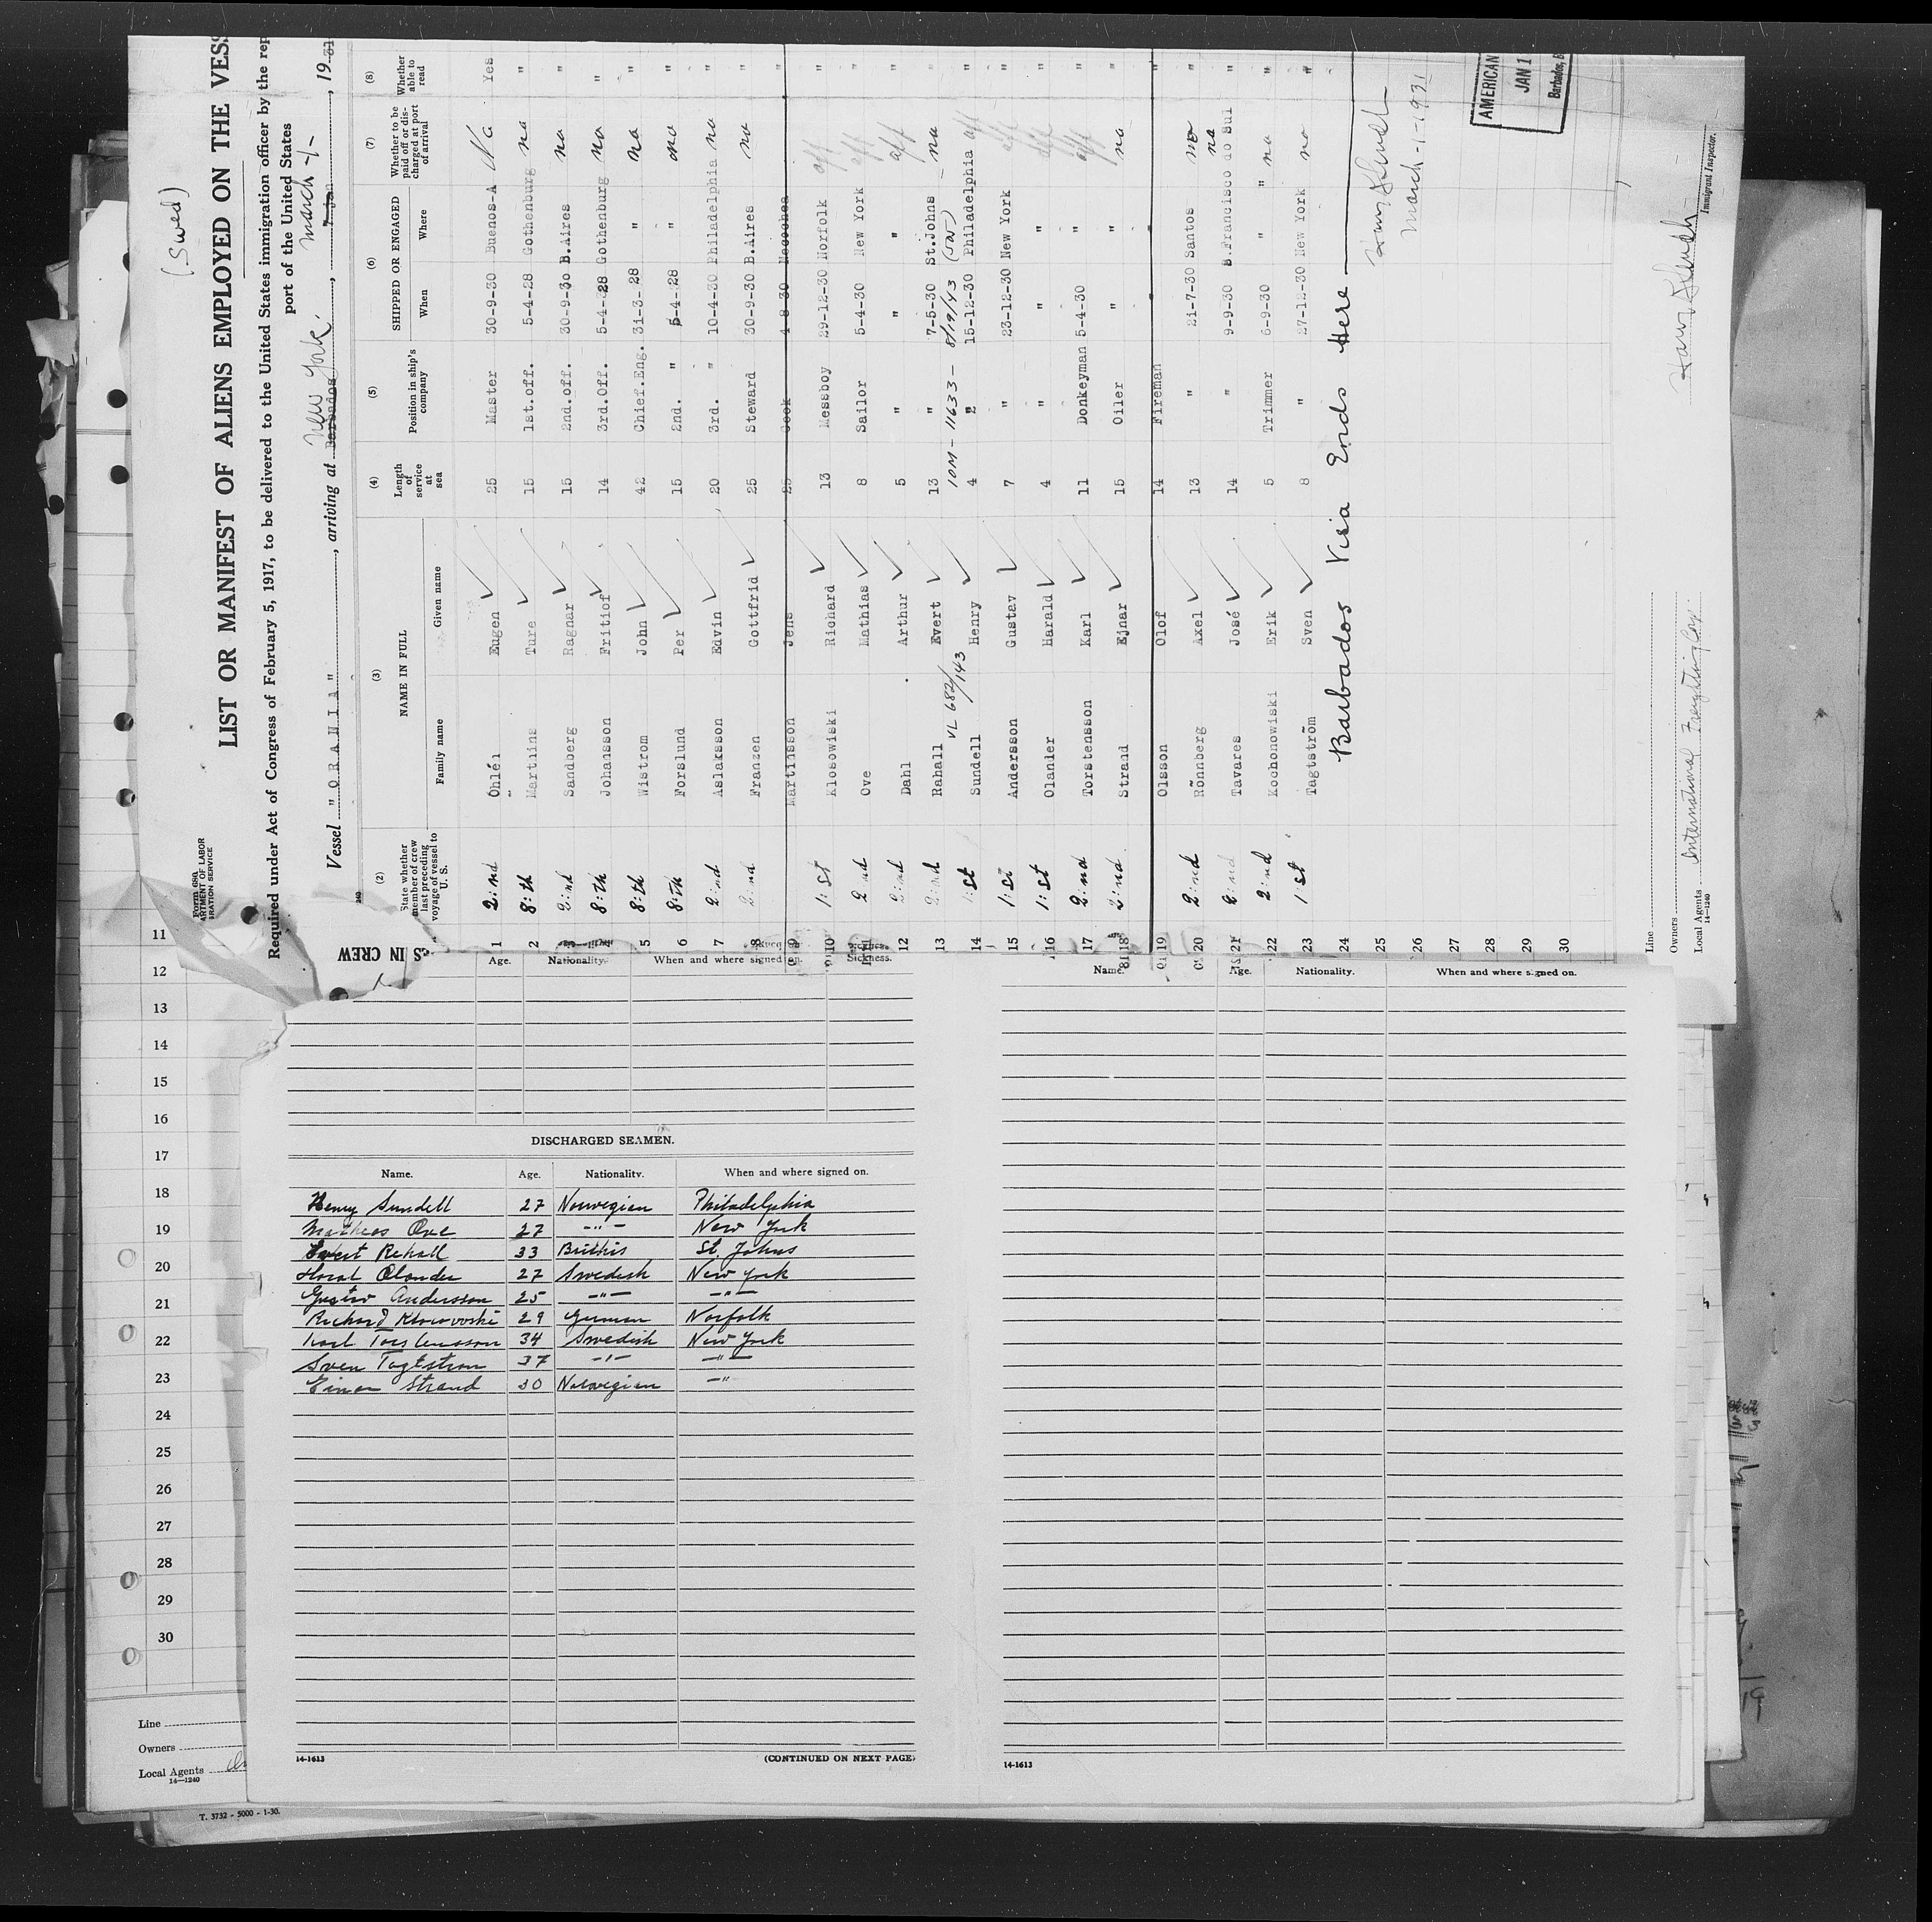 (Swed)
LIST OR MANIFEST OF ALIENS EMPLOYED ON THE VESS
Required under Act of Congress of February 5, 1917, to be delivered to the United States immigration officer by the rep
port of the United States
Vessel "ORANIA", arriving at Barbados New York, March -1-, 1931
(2) (3) (4) (5) (6) (7) (8)
State whether member of crew last preceding voyage of vessel to U. S.
NAME IN FULL
Family name Given name
Length of service at sea
Position in ship's company
SHIPPED OR ENGAGED
When Where
Whether to be paid off or discharged at port of arrival
Whether able to read
1 2:nd Öhlén Eugen 25 Master 30-9-30 Buenos-A No Yes
2 8:th Martins Ture 15 1st.off. 5-4-28 Gothenburg no "
3 2:nd Sandberg Ragnar 15 2nd.off. 30-9-30 B.Aires no "
4 8:th Johansson Fritiof 14 3rd.Off. 5-4-28 Gothenburg no "
5 8:th Wistrom John 42 Chief.Eng. 31-3-28 " no "
6 8:th Forslund Per 15 2nd. " 5-4-28 " no "
7 2:nd Aslaksson Edvin 20 3rd. " 10-4-30 Philadelphia no "
8 2:nd Franzen Gottfrid 25 Steward 30-9-30 B.Aires no "
9 Martinsson Jens 25 Cook 4-8-30 Necochea "
10 1:st Klosowiski Richard 13 Messboy 29-12-30 Norfolk off "
11 2:nd Ove Mathias 8 Sailor 5-4-30 New York off "
12 2:nd Dahl Arthur 5 " " " off "
13 2:nd Rahall Evert 13 " 7-5-30 St.Johns no "
VL 682/143 10M-11633- 8/19/43
14 1:st Sundell Henry 4 " 15-12-30 Philadelphia off "
15 1:st Andersson Gustav 7 " 23-12-30 New York off "
16 1:st Olander Harald 4 " " " off "
17 2:nd Torstensson Karl 11 Donkeyman 5-4-30 " off "
18 2:nd Strand Ejnar 15 Oiler " " no "
19 Olsson Olof 14 Fireman "
20 2:nd Rönnberg Axel 13 " 21-7-30 Santos no "
21 2:nd Tavares José 14 " 9-9-30 S.Francisco do Sul no "
22 2:nd Kochonowiski Erik 5 Trimmer 6-9-30 " " no "
23 1:st Tagtström Sven 8 " 27-12-30 New York no "
24 Barbados Visa Ends Here
25
26 March -1-1931
27
28
29
30
AMERICAN
JAN 1
Barbados, B
Immigrant Inspector.
Line
Owners
Local Agents International Freighting Corp.
14-1240
Form 680
ARTMENT OF LABOR
RATION SERVICE
11
12
13
14
15
16
17
18
19
20
21
22
23
24
25
26
27
28
29
30
Line
Owners
Local Agents
14-1240
T. 3732 - 5000 - 1-30.
ES IN CREW
Age. Nationality. When and where signed on. Sickness.
DISCHARGED SEAMEN.
Name. Age. Nationality. When and where signed on.
Henry Sundell 27 Norwegian Philadelphia
Matheos Ove 27 -"- New York
Evert Rehall 33 Brithis St. Johns
Haral Olander 27 Swedish New York
Gustav Andersson 25 -"- -"-
Richard Klosowoski 29 German Norfolk
Karl Torstensson 34 Swedish New York
Sven Tagtstrom 37 -"- -"-
Einar Strand 30 Norwegian -"-
14-1613
(CONTINUED ON NEXT PAGE)
Name. Age. Nationality. When and where signed on.
14-1613